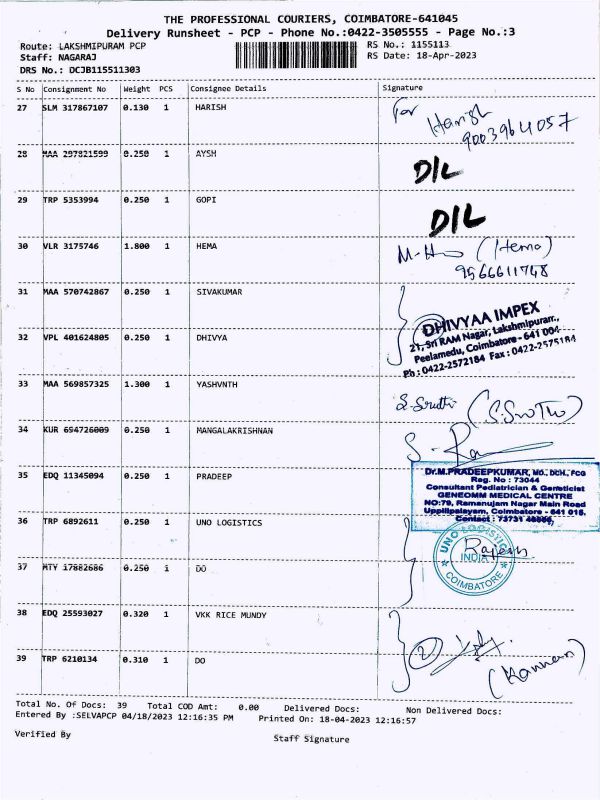 THE PROFESSIONAL COURIERS, COIMBATORE-641045
Delivery Runsheet - PCP - Phone No.:0422-3505555 - Page No.:3
Route: LAKSHMIPURAM PCP RS No.: 1155113
Staff: NAGARAJ RS Date: 18-Apr-2023
DRS No.: DCJB115511303
S No Consignment No Weight PCS Consignee Details Signature
27 SLM 317867107 0.130 1 HARISH For Harish
9003964057
28 MAA 297821599 0.250 1 AYSH D/L
29 TRP 5353994 0.250 1 GOPI D/L
30 VLR 3175746 1.800 1 HEMA (Hema)
9566611748
31 MAA 570742867 0.250 1 SIVAKUMAR
DHIVYAA IMPEX
32 VPL 401624805 0.250 1 DHIVYA 21, Sri RAM Nagar, Lakshmipuram,
Peelamedu, Coimbatore - 641 004
Ph : 0422-2572184 Fax : 0422-2575184
33 MAA 569857325 1.300 1 YASHVNTH S. Sruthi
34 KUR 694726009 0.250 1 MANGALAKRISHNAN
35 EDQ 11345094 0.250 1 PRADEEP
Dr.M.PRADEEPKUMAR, MD., DCH., FCG
Reg. No : 73044
Consultant Pediatrician & Geneticist
GENEOMM MEDICAL CENTRE
NO:79, Ramanujam Nagar Main Road
Uppilipalayam, Coimbatore - 641 015.
Contact : 73731
36 TRP 6892611 0.250 1 UNO LOGISTICS
UNO LOGISTICS
Rajesh
INDIA
COIMBATORE
37 MTY 17882686 0.250 1 DO
38 EDQ 25593027 0.320 1 VKK RICE MUNDY
2
39 TRP 6210134 0.310 1 DO (Kannan)
Total No. Of Docs: 39 Total COD Amt: 0.00 Delivered Docs: Non Delivered Docs:
Entered By :SELVAPCP 04/18/2023 12:16:35 PM Printed On: 18-04-2023 12:16:57
Verified By Staff Signature